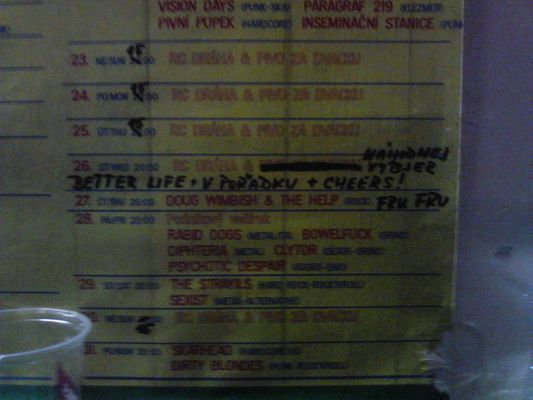 VISION DAYS (PUNK-SKA) PARAGRAF 219 (KLEZMER)
PIVNÍ PUPEK (HARDCORE) INSEMINAČNÍ STANICE (PUNK
23. NE/SUN 15:00 RC DRÁHA & PIVO ZA DVACKU
24. PO/MON 15:00 RC DRÁHA & PIVO ZA DVACKU
25. ÚT/THU 15:00 RC DRÁHA & PIVO ZA DVACKU
26. ST/WED 20:00 RC DRÁHA & NÁHODNEJ VÝBJER
BETTER LIFE + V POŘÁDKU + CHEERS!
27. ČT/THU 20:00 DOUG WIMBISH & THE HELP (ROCK) FRU FRU
28. PÁ/FRI 20:00
RABID DOGS (METAL/CZ) BOWELFUCK (GRIND)
DIPHTERIA (METAL) CLYTOR (DEATH-GRIND)
PSYCHOTIC DESPAIR
29. SO/SAT 20:00 THE STRAYILS (HARD ROCK-ROCK'N'ROLL)
SEXIST (METAL-ALTERNATIVE)
NE/SUN RC DRÁHA & PIVO ZA DVACKU
31. PO/MON 20:00 SKARHEAD
DIRTY BLONDES (PUNK-ROCK'N'ROLL)